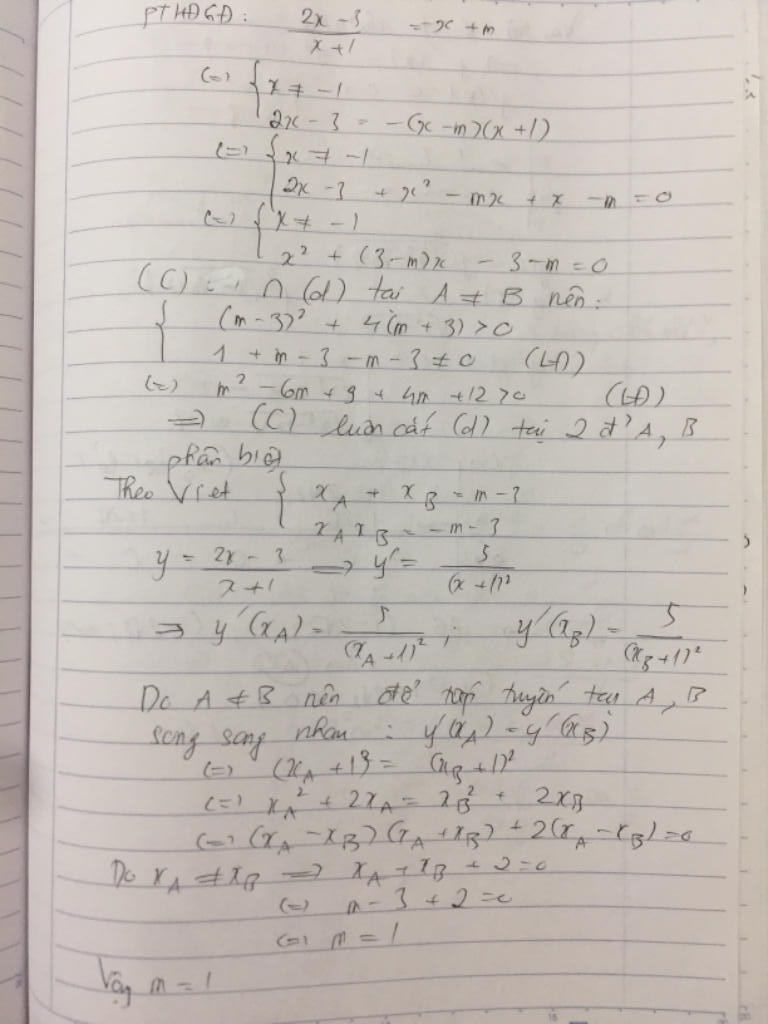 PTHĐGĐ: \frac{2x-3}{x+1} = -x + m
(=) { x ≠ -1
2x - 3 = -(x - m)(x + 1)
(=) { x ≠ -1
2x - 3 + x² - mx + x - m = 0
(=) { x ≠ -1
x² + (3-m)x - 3 - m = 0
(C) ∩ (d) tại A ≠ B nên:
{ (m-3)² + 4(m+3) > 0
1 + m - 3 - m - 3 ≠ 0 (LĐ)
(=) m² - 6m + 9 + 4m + 12 > 0 (LĐ)
=> (C) luôn cắt (d) tại 2 đ' A, B
phân biệt
Theo Viet { x_A + x_B = m - 3
x_A x_B = -m - 3
y = \frac{2x-3}{x+1} => y' = \frac{5}{(x+1)²}
=> y'(x_A) = \frac{5}{(x_A+1)²} ; y'(x_B) = \frac{5}{(x_B+1)²}
Do A ≠ B nên để tiếp tuyến tại A, B
song song nhau : y'(x_A) = y'(x_B)
(=) (x_A + 1)² = (x_B + 1)²
(=) x_A² + 2x_A = x_B² + 2x_B
(=) (x_A - x_B)(x_A + x_B) + 2(x_A - x_B) = 0
Do x_A ≠ x_B => x_A + x_B + 2 = 0
(=) m - 3 + 2 = 0
(=) m = 1
Vậy m = 1